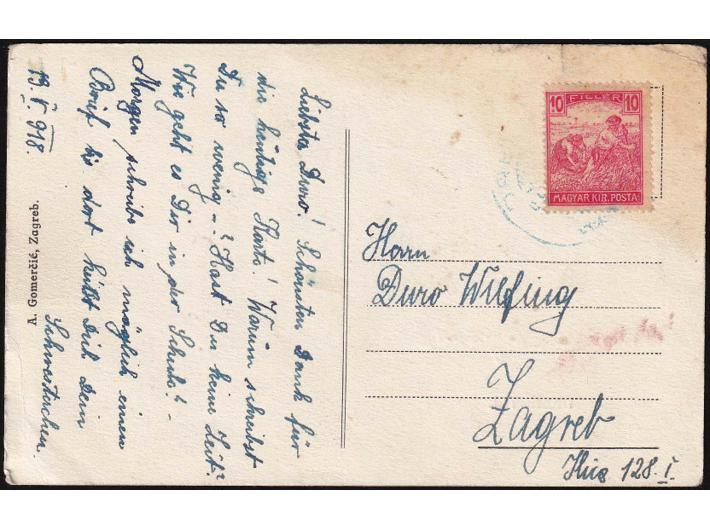 13. V. 918.
Liebster Duro! Schönsten Dank für
die heutige Karte! Warum schreibst
Du so wenig –? Hast Du keine Zeit?
Wie geht es Dir in der Schule? –
Morgen schreibe ich möglich einen
Brief bis dort küßt Dich Dein
Schwesterchen
A. Gomerčić, Zagreb.
10 FILLÉR 10
MAGYAR KIR. POSTA
Herrn
Duro Wilfing
Zagreb
Ilica 128. I.